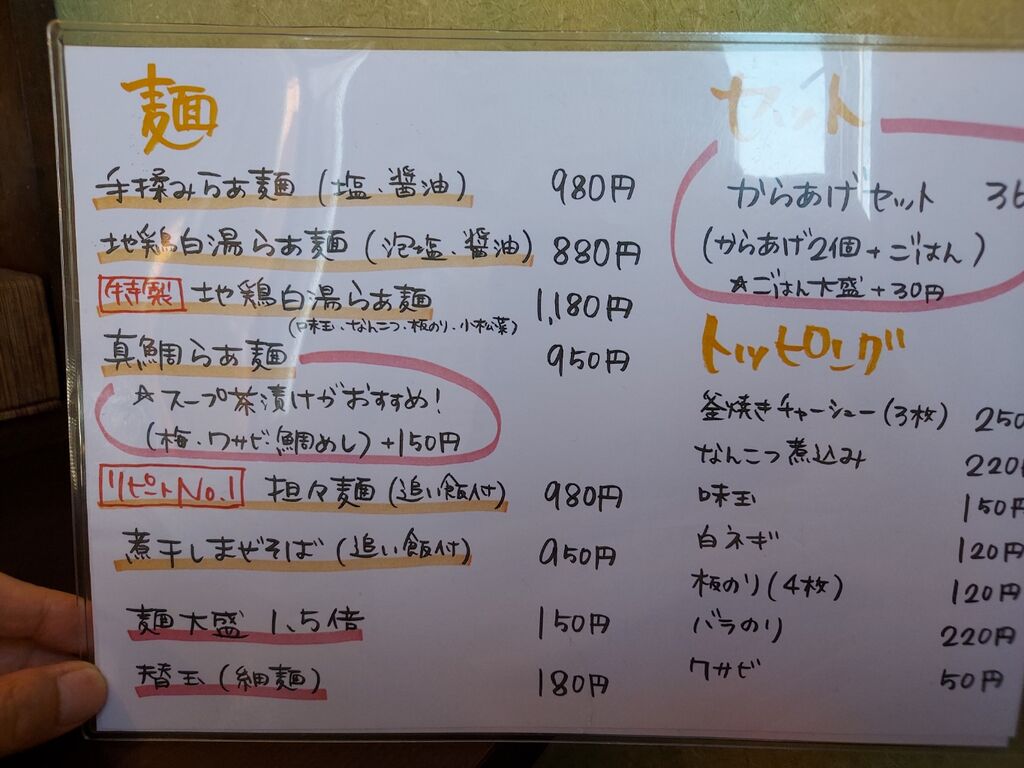 麺
手揉みらぁ麺 (塩、醤油) 980円
地鶏白湯らぁ麺 (泡塩、醤油) 880円
特製 地鶏白湯らぁ麺 1,180円
(味玉、なんこつ、板のり、小松菜)
真鯛らぁ麺 950円
☆スープ茶漬けがおすすめ!
(梅・ワサビ・鯛めし) +150円
リピートNo.1 担々麺 (追い飯付) 980円
煮干しまぜそば (追い飯付) 950円
麺大盛 1.5倍 150円
替玉 (細麺) 180円
セット
からあげセット
(からあげ2個+ごはん)
☆ごはん大盛+30円
トッピング
釜焼きチャーシュー(3枚) 250
なんこつ煮込み 220円
味玉 150円
白ネギ 120円
板のり(4枚) 120円
バラのり 220円
ワサビ 50円